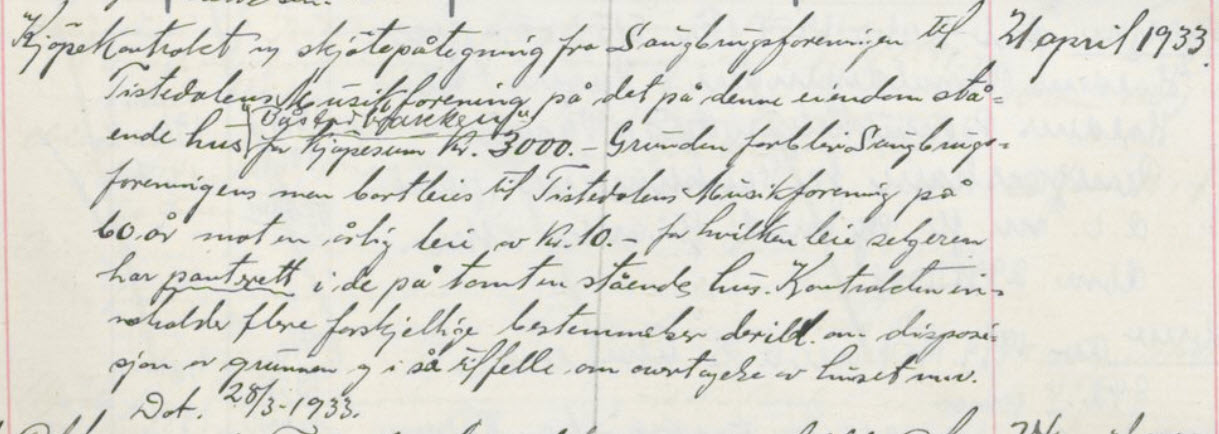 Kjøpekontrakt m skjøtepåtegning fra Saugbrugsforeningen til 21 april 1933.
Tistedalens Musikforening på det på denne eiendom stå-
ende hus for kjøpesum Kr. 3000.- Grunden forblir Saugbrugs-
foreningens men bortleies til Tistedalens Musikforening på
60 år mot en årlig leie av Kr. 10.- for hvilken leie selgeren
har pantrett i de på tomten stående hus. Kontrakten in-
neholder flere forskjellige bestemmelser deribl. om disposi-
sjon av grunnen og i så tilfelle om overtagelse av huset mv.
Dat. 28/3-1933.